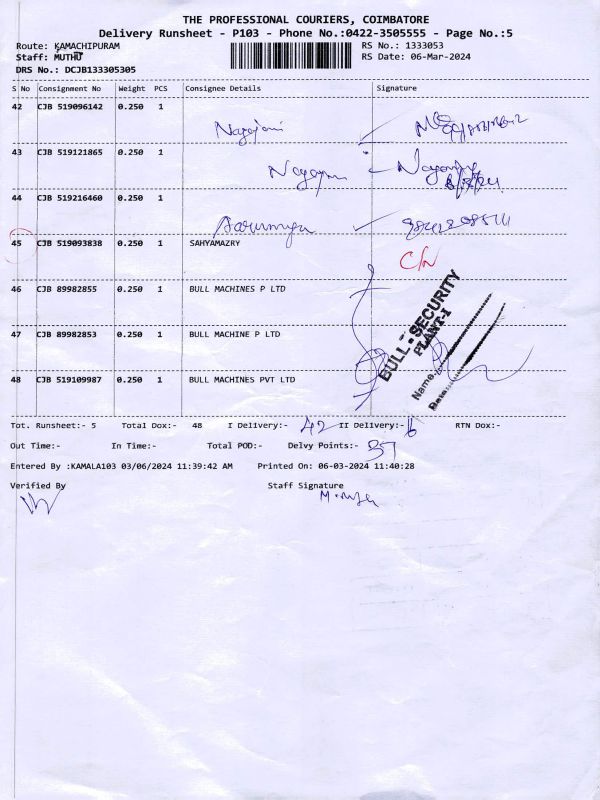 THE PROFESSIONAL COURIERS, COIMBATORE
Delivery Runsheet - P103 - Phone No.:0422-3505555 - Page No.:5
Route: KAMACHIPURAM
RS No.: 1333053
Staff: MUTHU
RS Date: 06-Mar-2024
DRS No.: DCJB133305305
S No Consignment No Weight PCS Consignee Details Signature
42 CJB 519096142 0.250 1
43 CJB 519121865 0.250 1
44 CJB 519216460 0.250 1
45 CJB 519093838 0.250 1 SAHYAMAZRY
46 CJB 89982855 0.250 1 BULL MACHINES P LTD
47 CJB 89982853 0.250 1 BULL MACHINE P LTD
48 CJB 519109987 0.250 1 BULL MACHINES PVT LTD
BULL - SECURITY
PLANT-I
Name
Date
Tot. Runsheet:- 5 Total Dox:- 48 I Delivery:- 42 II Delivery:- 6 RTN Dox:-
Out Time:- In Time:- Total POD:- Delvy Points:- 37
Entered By :KAMALA103 03/06/2024 11:39:42 AM Printed On: 06-03-2024 11:40:28
Verified By Staff Signature